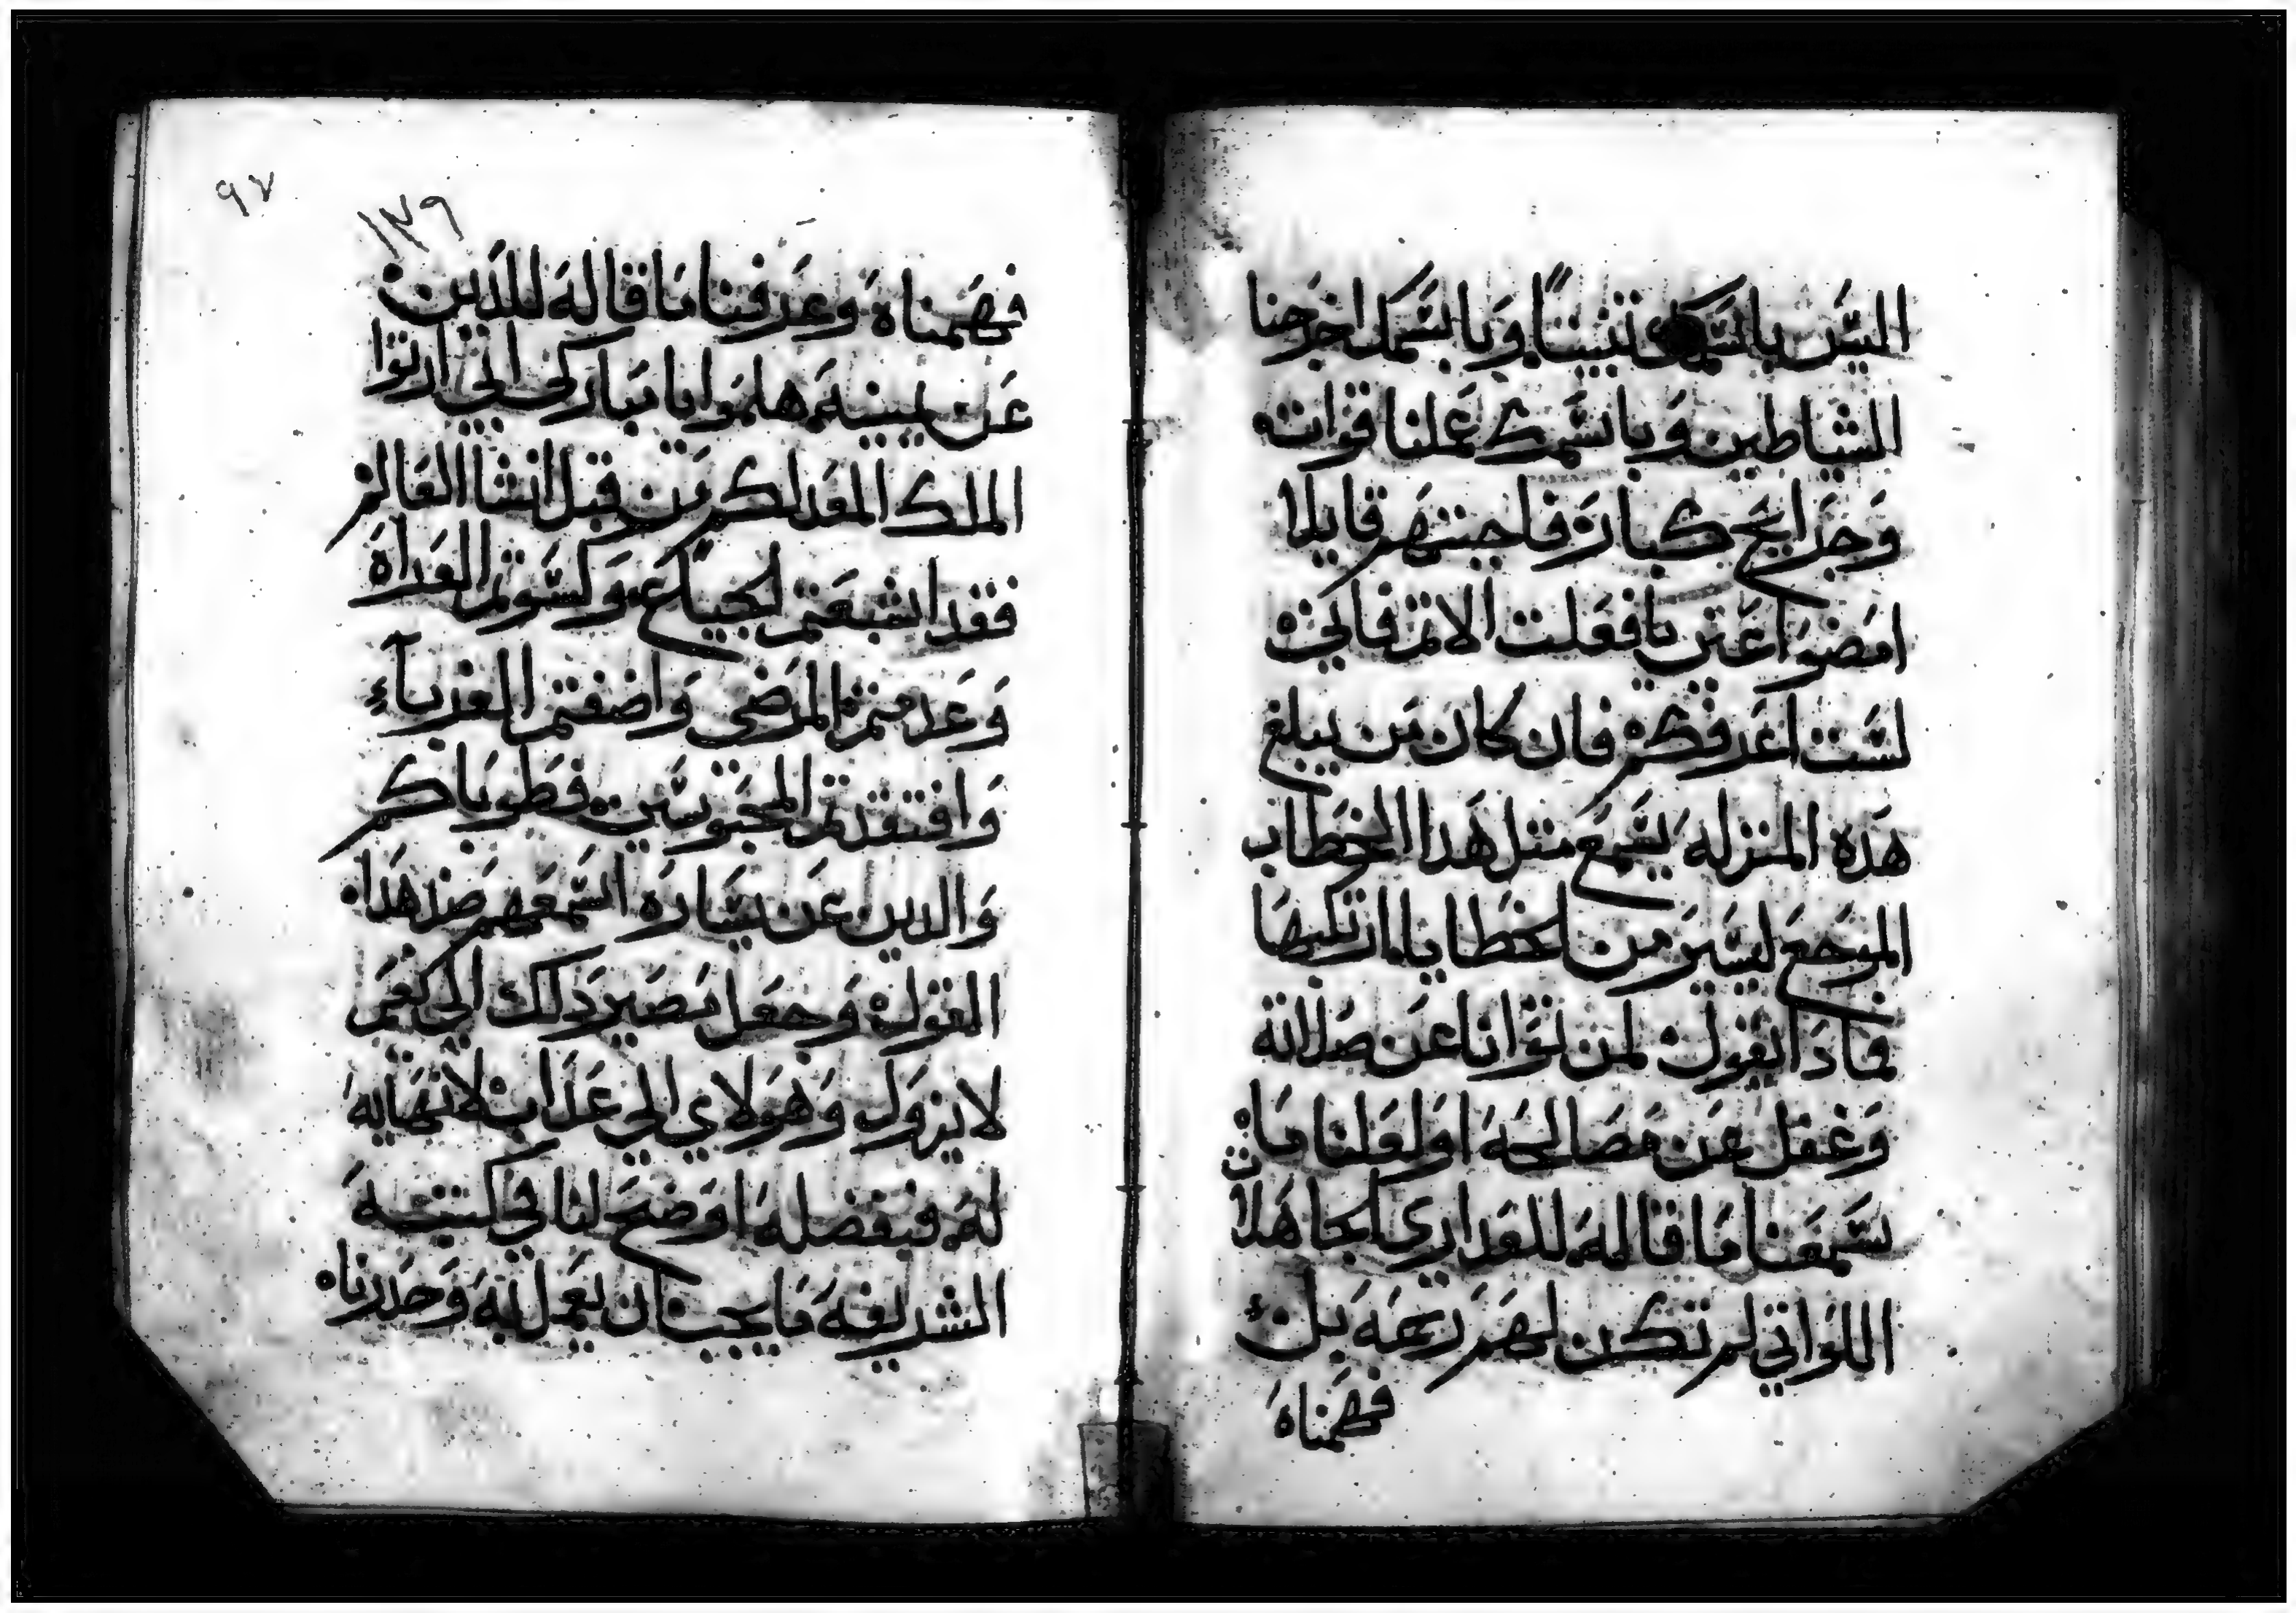 اليس باسمك تنبينا وباسمك اخرجنا
الشياطين وباسمك عملنا قوات
وجرايح كباره فاجبتهم قايلا
امضوا عني يا فعلت الاثم فاني
لست اعرفكم فان كان من يبلغ
هده المنزله يسمع متل هدا الخطاب
الموجع ليسير من الخطايا ارتكبها
فمادا نقول لمن توانا عن صلاته
وغفل عن مصالحه اولعلنا ما
سمعنا ما قاله للعداري الجاهلات
اللواتي لم تكن لهم رحمه بل
فهمناه
٩٧
١٢٩
فهمناه وعرفنا ما قاله للدين
عن يمينه هلموا يا مباركى ابي ارتوا
الملك المعد لكم من قبل انشا العالم
فقد اشبعتم الجياع وكسوتم العراه
وخدمتم المرضي واضفتم الغرباء
وافتقدتم المحبوسين فطوباكم
والدين عن يساره اسمعهم ضد هدا
القول وجعل مصير دلك الي نعيم
لا يزول وهولاي الي عداب لا نهايه
له فبفضله اوضح لنا في كتبه
الشريفه ما يجب ان يعمل به وحدرنا